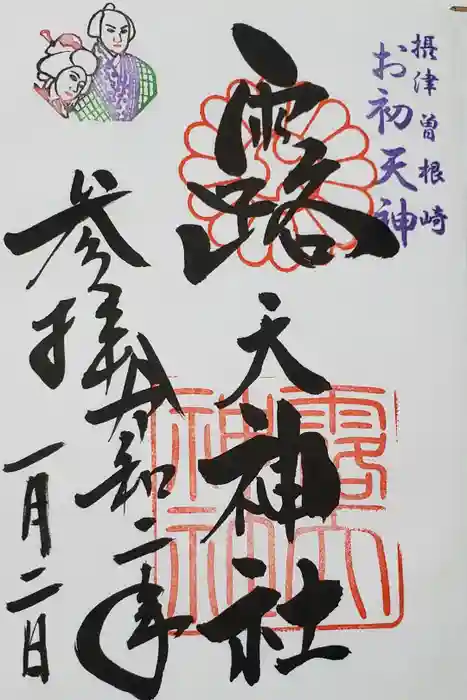 摂津曽根崎
お初天神
露天神社
参拝令和二年
一月二日